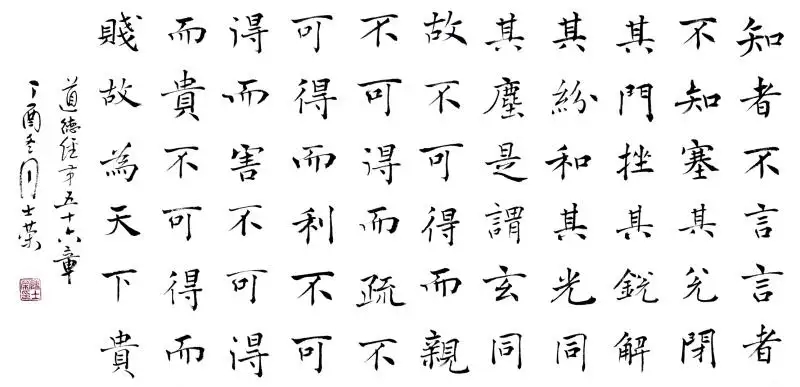 知者不言言者
不知塞其兌閉
其門挫其銳解
其紛和其光同
其塵是謂玄同
故不可得而親
不可得而疏不
可得而利不可
得而害不可得
而貴不可得而
賤故為天下貴
道德经第五十六章
丁酉冬月士荣